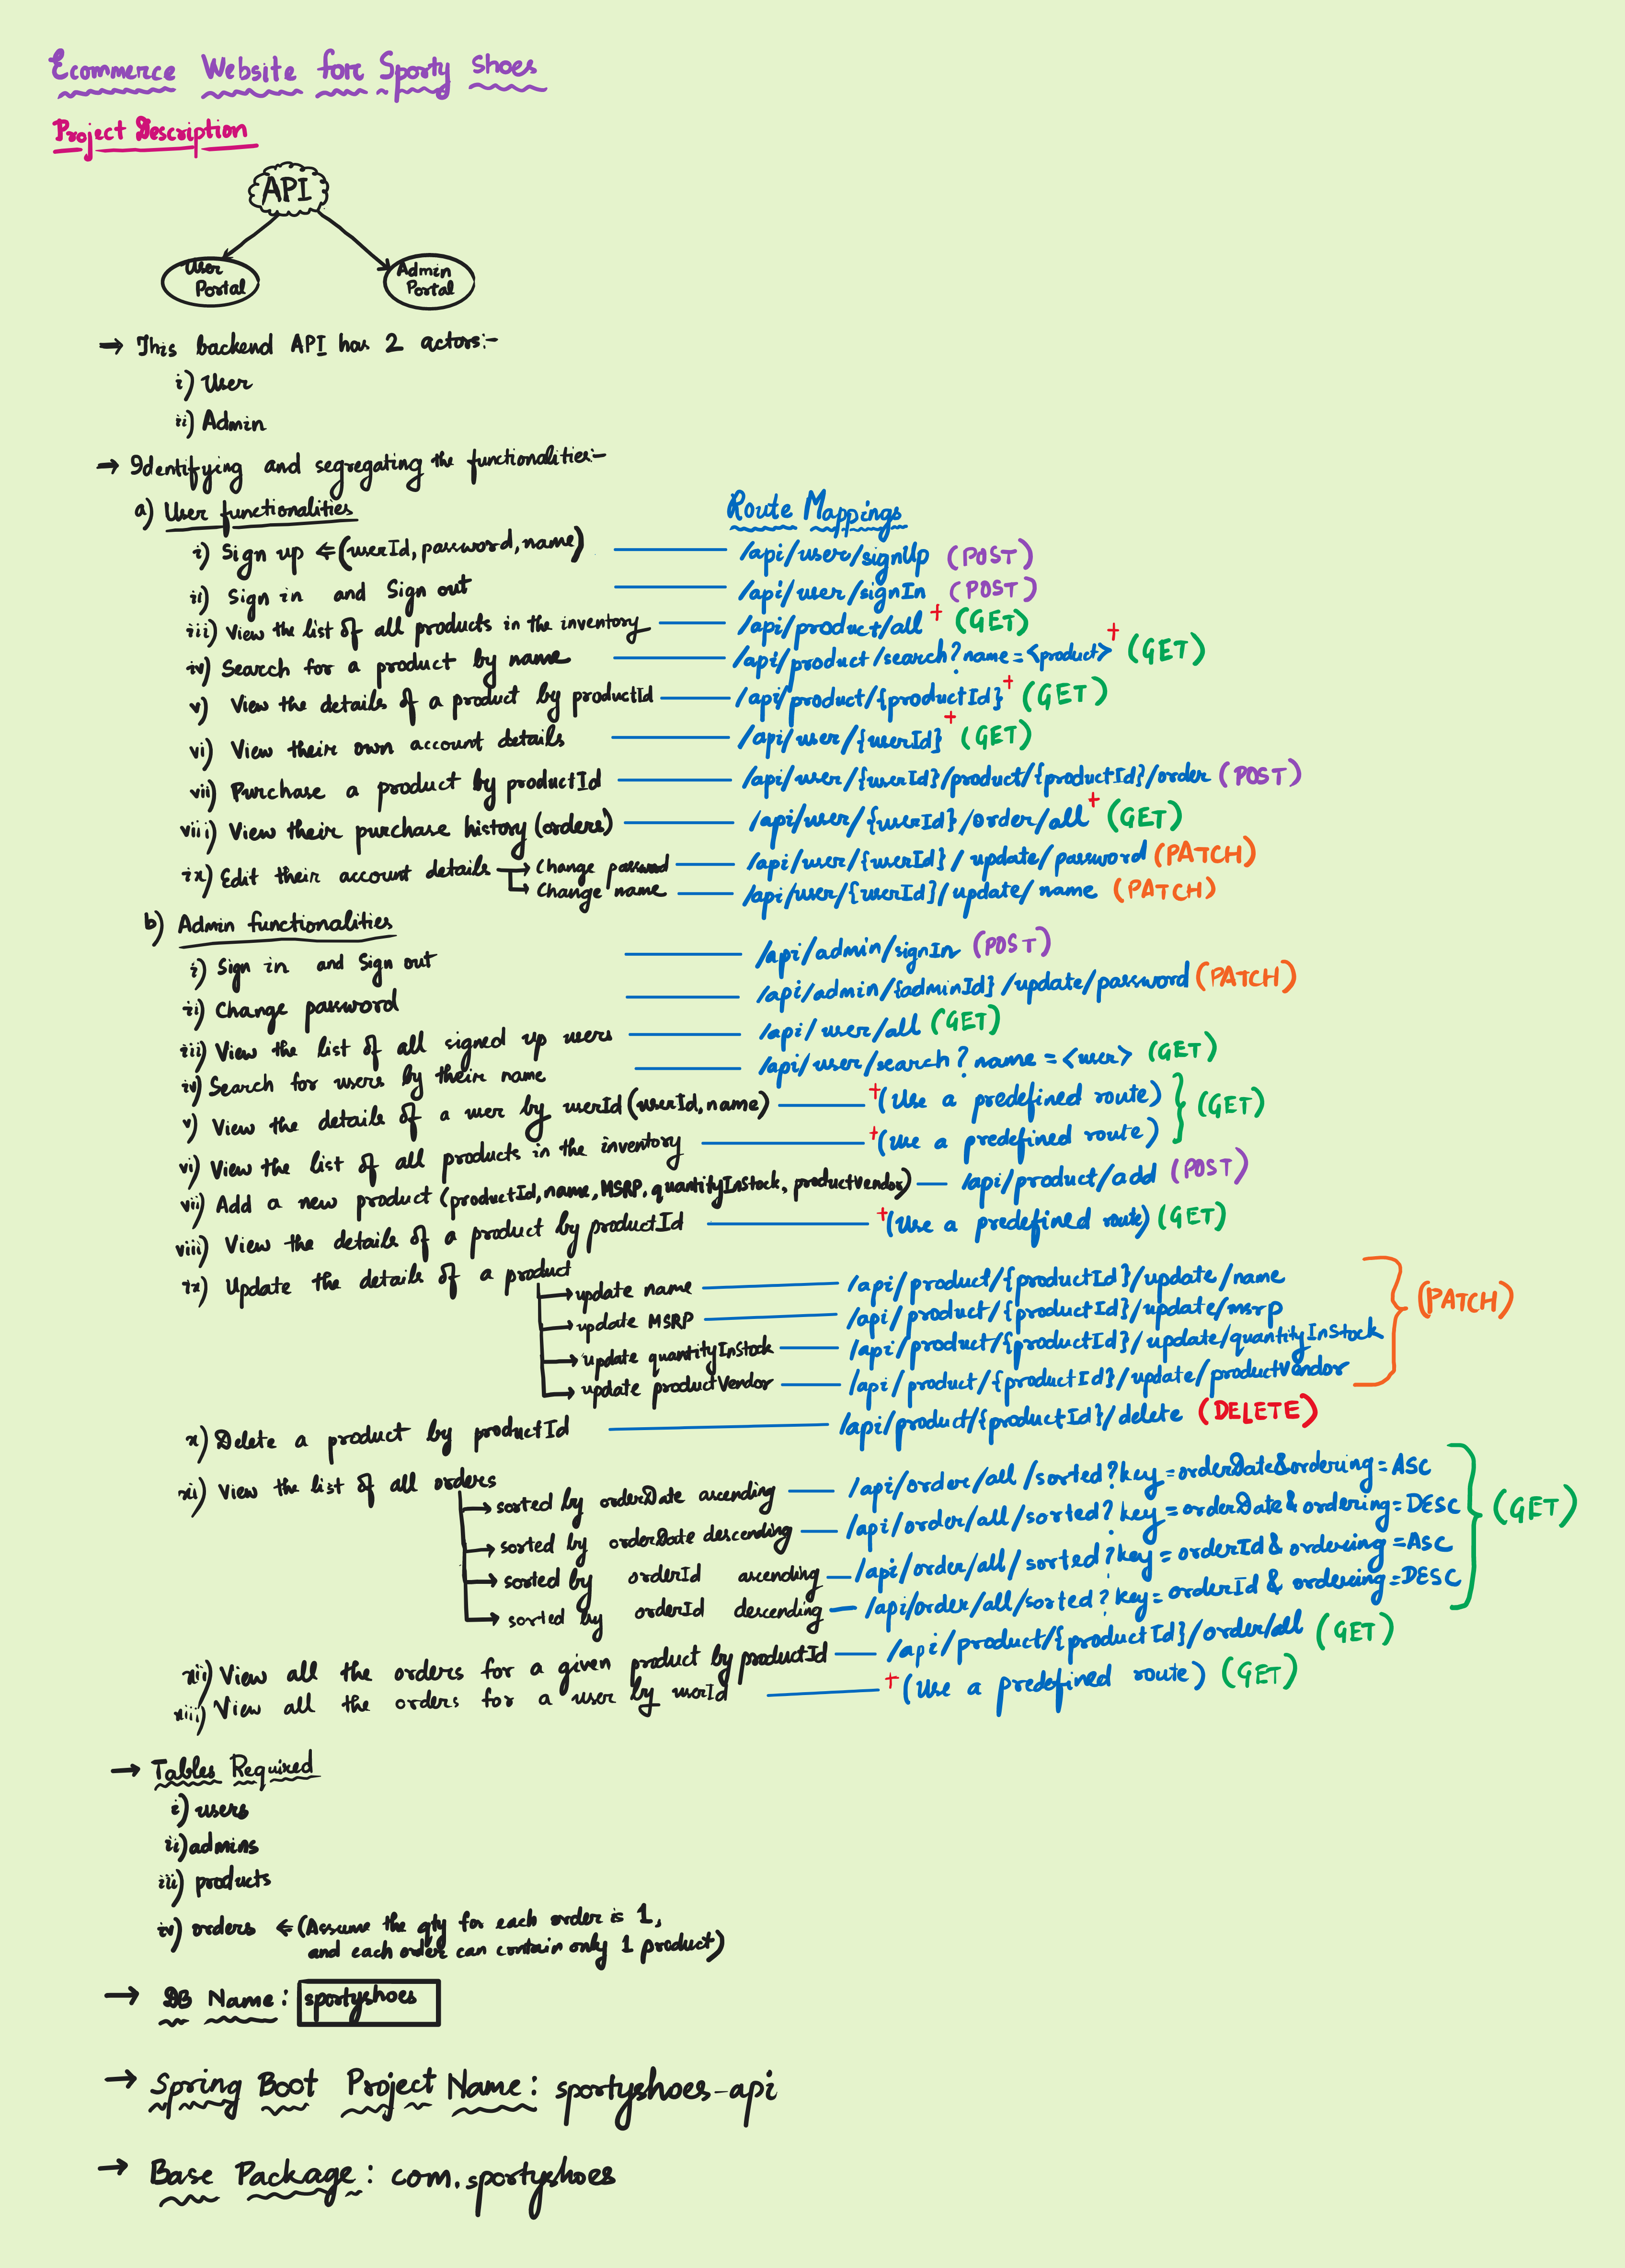 Ecommerce Website for Sporty Shoes
Project Description
API
User Portal
Admin Portal
→ This backend API has 2 actors:-
i) User
ii) Admin
→ Identifying and segregating the functionalities:-
a) User functionalities
Route Mappings
i) Sign up ⇐ (userId, password, name) — /api/user/signUp (POST)
ii) Sign in and Sign out — /api/user/signIn (POST)
iii) View the list of all products in the inventory — /api/product/all + (GET)
iv) Search for a product by name — /api/product/search?name=<product> + (GET)
v) View the details of a product by productId — /api/product/{productId} + (GET)
vi) View their own account details — /api/user/{userId} + (GET)
vii) Purchase a product by productId — /api/user/{userId}/product/{productId}/order (POST)
viii) View their purchase history (orders) — /api/user/{userId}/order/all + (GET)
ix) Edit their account details → Change password — /api/user/{userId}/update/password (PATCH)
→ Change name — /api/user/{userId}/update/name (PATCH)
b) Admin functionalities
i) Sign in and Sign out — /api/admin/signIn (POST)
ii) Change password — /api/admin/{adminId}/update/password (PATCH)
iii) View the list of all signed up users — /api/user/all (GET)
iv) Search for users by their name — /api/user/search?name=<user> (GET)
v) View the details of a user by userId (userId, name) — +(Use a predefined route)
vi) View the list of all products in the inventory — +(Use a predefined route) } (GET)
vii) Add a new product (productId, name, MSRP, quantityInStock, productVendor) — /api/product/add (POST)
viii) View the details of a product by productId — +(Use a predefined route) (GET)
ix) Update the details of a product
→ update name — /api/product/{productId}/update/name
→ update MSRP — /api/product/{productId}/update/msrp
→ update quantityInStock — /api/product/{productId}/update/quantityInStock
→ update productVendor — /api/product/{productId}/update/productVendor
} (PATCH)
x) Delete a product by productId — /api/product/{productId}/delete (DELETE)
xi) View the list of all orders
→ sorted by orderDate ascending — /api/order/all/sorted?key=orderDate&ordering=ASC
→ sorted by orderDate descending — /api/order/all/sorted?key=orderDate&ordering=DESC
→ sorted by orderId ascending — /api/order/all/sorted?key=orderId&ordering=ASC
→ sorted by orderId descending — /api/order/all/sorted?key=orderId&ordering=DESC
} (GET)
xii) View all the orders for a given product by productId — /api/product/{productId}/order/all (GET)
xiii) View all the orders for a user by userId — +(Use a predefined route) (GET)
→ Tables Required
i) users
ii) admins
iii) products
iv) orders ⇐ (Assume the qty for each order is 1,
and each order can contain only 1 product)
→ DB Name: sportyshoes
→ Spring Boot Project Name: sportyshoes-api
→ Base Package: com.sportyshoes